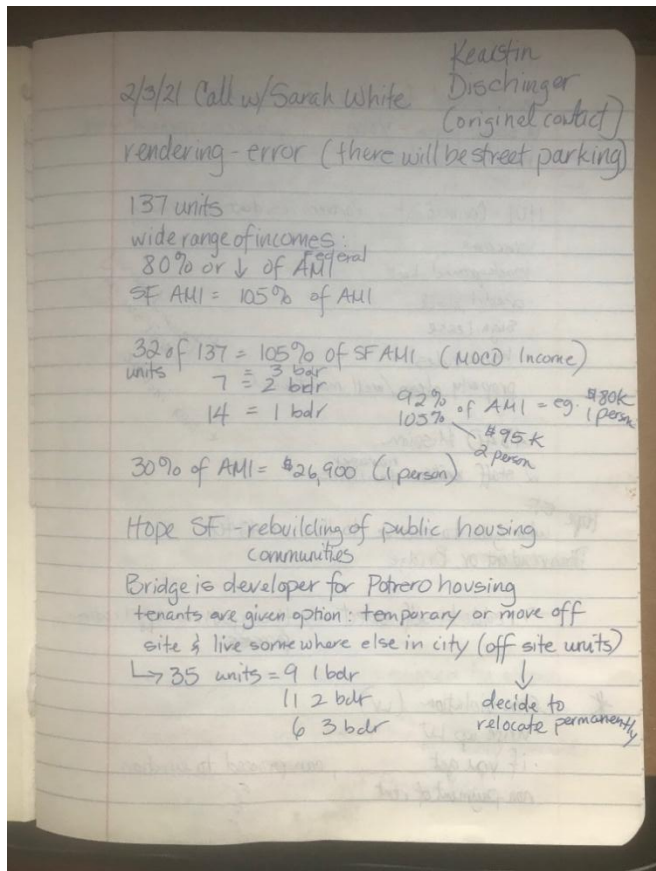 Kearstin
Dischinger
(original contact)
2/3/21 Call w/ Sarah White
rendering - error (there will be street parking)
137 units
wide range of incomes:
80% or ↓ of Federal AMI
SF AMI = 105% of AMI
32 of 137 = 105% of SF AMI (MOCD Income)
units
= 3 bdr
7 = 2 bdr
14 = 1 bdr
92% of AMI = eg. $80K
105% 1 person
$95K
2 person
30% of AMI = $26,900 (1 person)
Hope SF - rebuilding of public housing
communities
Bridge is developer for Potrero housing
tenants are given option: temporary or move off
site & live somewhere else in city (off site units)
↳ 35 units = 9 1 bdr
11 2 bdr
6 3 bdr
↓
decide to
relocate permanently